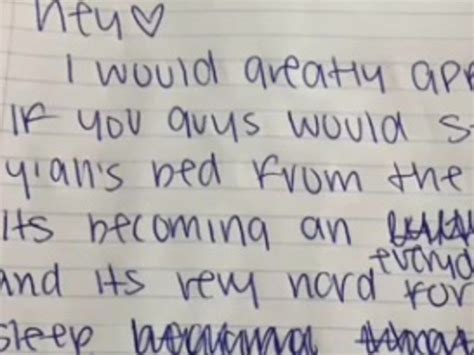 hey♡
I would greatly app
IF you guys would s
yian's bed from the
its becoming an
everyd
and its very hard for
sleep